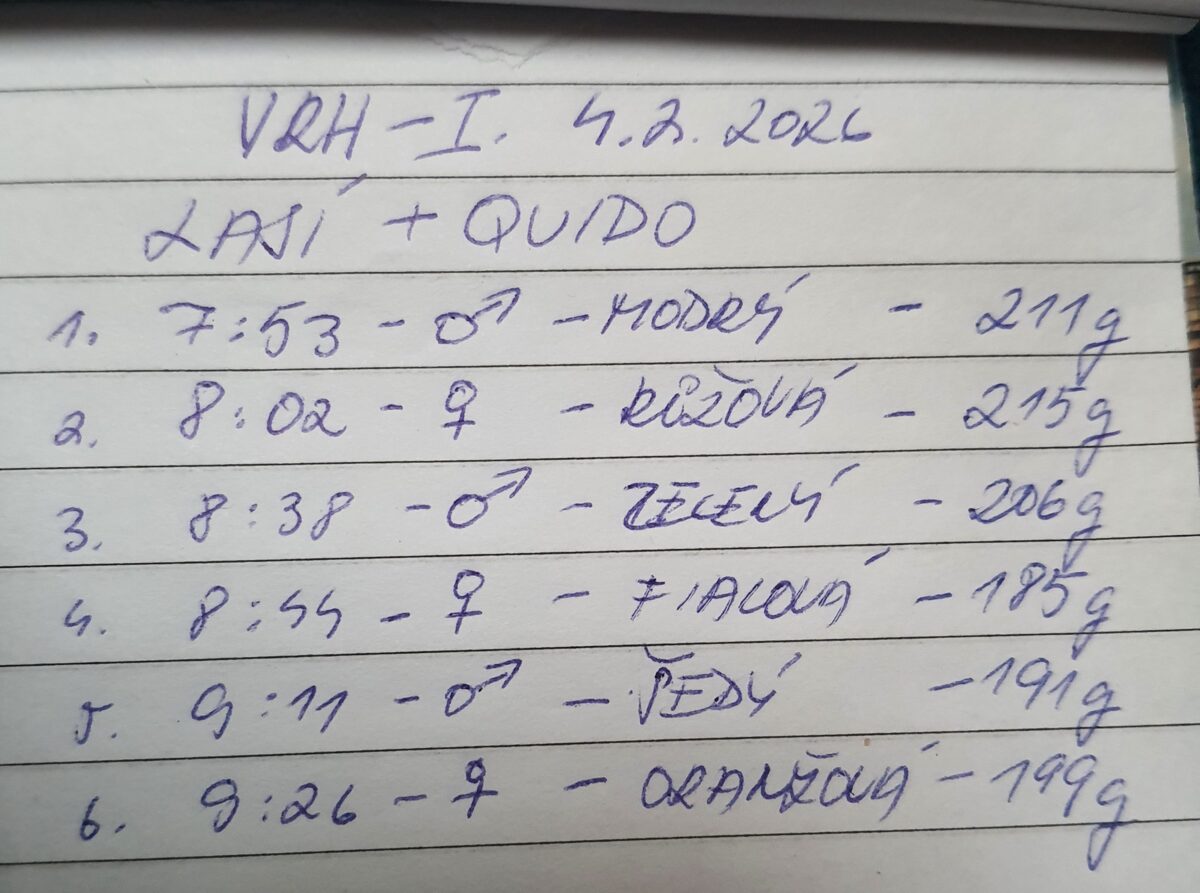 VRH - I. 4.2. 2026
LASÍ + QUIDO
1. 7:53 - ♂ - MODRÝ - 211g
2. 8:02 - ♀ - RŮŽOVÁ - 215g
3. 8:38 - ♂ - ZELENÝ - 206g
4. 8:44 - ♀ - FIALOVÁ - 185g
5. 9:11 - ♂ - ŠEDÝ - 191g
6. 9:26 - ♀ - ORANŽOVÁ - 199g